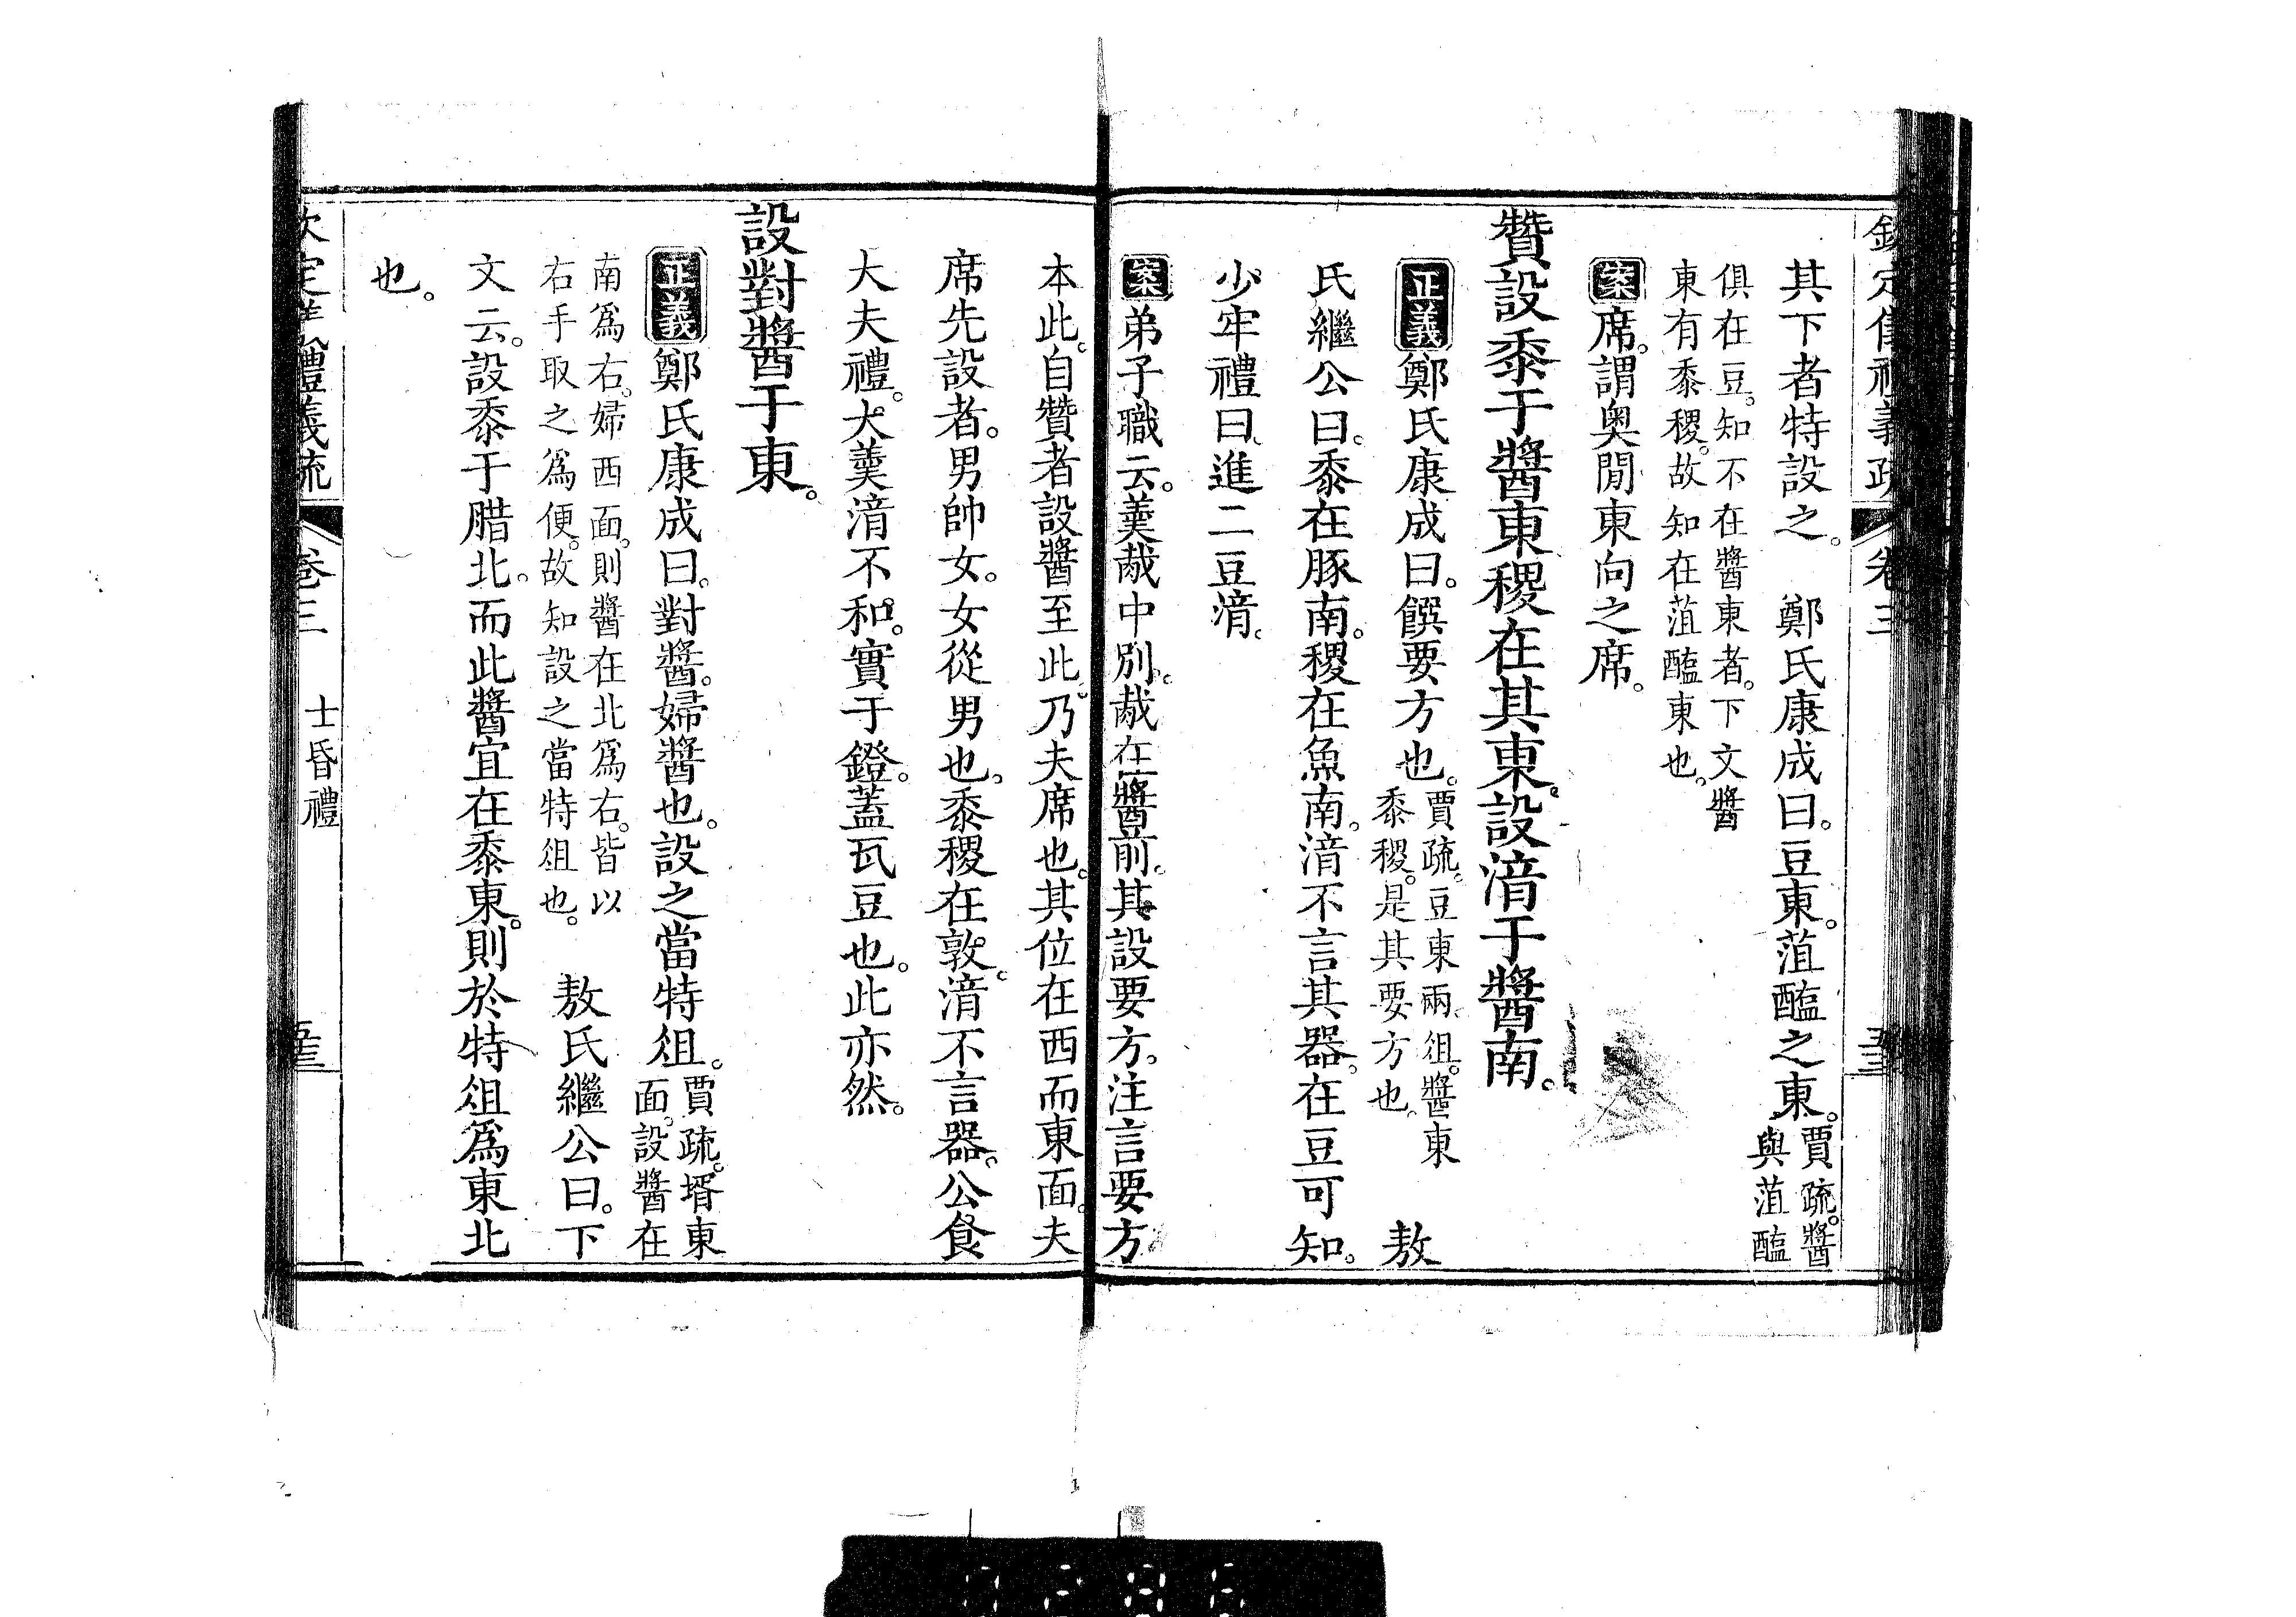 其下者特設之。　鄭氏康成曰。豆東。菹醢之東。賈疏。醬與菹醢
俱在豆。知不在醬東者。下文醬
東有黍稷。故知在菹醢東也。
案席。謂奧閒東向之席。
贊設黍于醬東稷在其東。設湆于醬南。
正義鄭氏康成曰。饌要方也。賈疏。豆東兩俎。醬東黍稷。是其要方也。　敖
氏繼公曰。黍在豚南。稷在魚南。湆不言其器。在豆可知。
少牢禮曰。進二豆湆。
案弟子職云。羹胾中別。胾在醬前。其設要方。注言要方
本此。自贊者設醬至此。乃夫席也。其位在西而東面。夫
席先設者。男帥女。女從男也。黍稷在敦。湆不言器。公食
大夫禮。大羹湆不和。實于鐙。蓋瓦豆也。此亦然。
設對醬于東。
正義鄭氏康成曰。對醬。婦醬也。設之當特俎。賈疏。壻東面。設醬在
南爲右。婦西面。則醬在北爲右。皆以
右手取之爲便。故知設之當特俎也。　敖氏繼公曰。下
文云。設黍于腊北。而此醬宜在黍東。則於特俎爲東北
也。
欽定儀禮義疏　卷三　士昏禮　五三